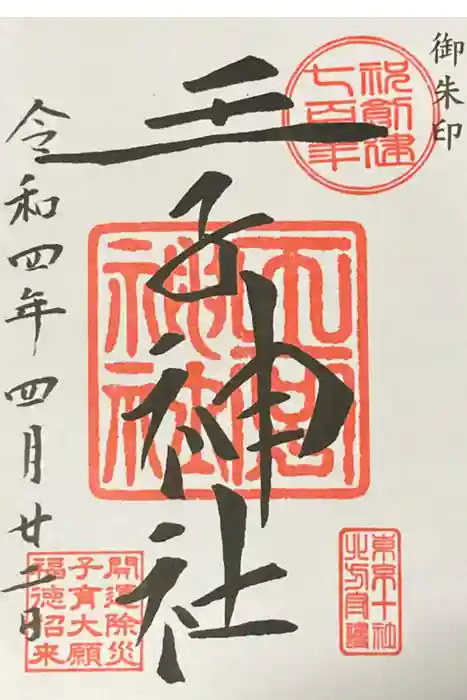 御朱印
祝創建
七百年
王子神社
王子神社
東京十社
北方守護
開運除災
子育大願
福徳招来
令和四年四月廿二日